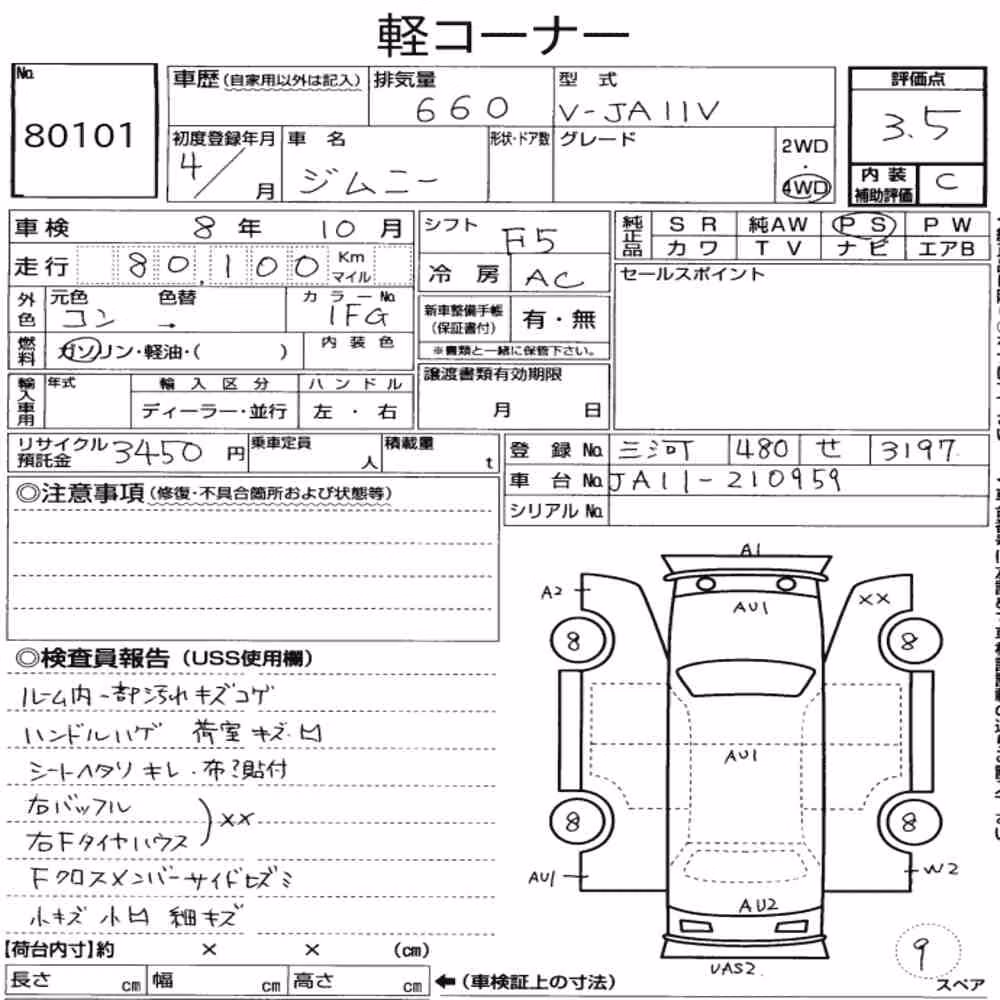 軽コーナー
No. 80101
車歴 (自家用以外は記入)
排気量 660
型式 V-JA11V
評価点 3.5
初度登録年月 4/ 月
車名 ジムニー
形状・ドア数
グレード
2WD・4WD
内装補助評価 C
車検 8年 10月
シフト F5
純正品 SR 純AW PS PW
カワ TV ナビ エアB
走行 80,100 Km マイル
冷房 AC
セールスポイント
外色 元色 コン 色替 → カラーNo. 1FG
新車整備手帳(保証書付) 有・無
※書類と一緒に保管下さい。
燃料 ガソリン・軽油・( ) 内装色
譲渡書類有効期限
月 日
輸入車用 年式 輸入区分 ハンドル
ディーラー・並行 左・右
リサイクル預託金 3450円 乗車定員 人 積載量 t
登録No. 三河 480 せ 3197
車台No. JA11-210959
シリアルNo.
◎注意事項 (修復・不具合箇所および状態等)
◎検査員報告 (USS使用欄)
ルーム内一部汚れキズコゲ
ハンドルハゲ 荷室キズ凹
シートヘタリキレ・布?貼付
右バッフル
右Fタイヤハウス
) XX
Fクロスメンバーサイドロズミ
小キズ 小凹 細キズ
【荷台内寸】約 × × (cm)
長さ cm 幅 cm 高さ cm ←(車検証上の寸法)
A1
A2
AU1
XX
8
8
AU1
8
8
AU1
W2
AU2
UAS2
9
スペア